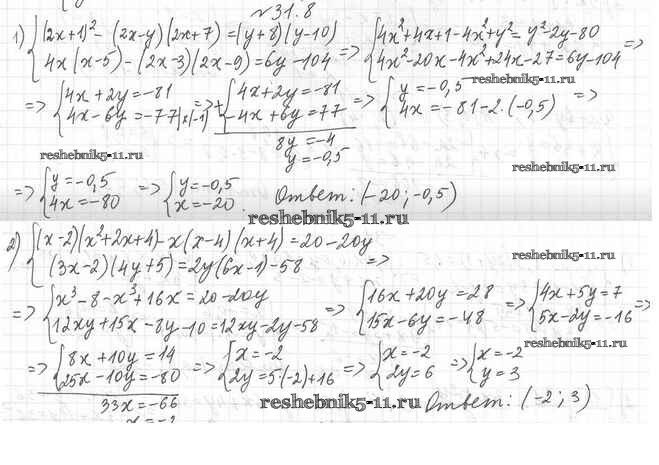 №31.8
1) {(2x+1)² - (2x-y)(2x+y) = (y+8)(y-10) {4x(x-5) - (2x-3)(2x-9) = 6y-104 => {4x²+4x+1-4x²+y² = y²-2y-80 {4x²-20x-4x²+24x-27 = 6y-104 =>
=> {4x+2y=-81 {4x-6y=-77 |x(-1) => + {4x+2y=-81 {-4x+6y=77 => {y=-0,5 {4x=-81-2·(-0,5) =>
8y=-4
y=-0,5
reshebnik5-11.ru
reshebnik5-11.ru
reshebnik5-11.ru
=> {y=-0,5 {4x=-80 => {y=-0,5 {x=-20. Ответ: (-20; -0,5)
reshebnik5-11.ru
2) {(x-2)(x²+2x+4)-x(x-4)(x+4)=20-20y {(3x-2)(4y+5)=2y(6x-1)-58 =>
reshebnik5-11.ru
=> {x³-8-x³+16x=20-20y {12xy+15x-8y-10=12xy-2y-58 => {16x+20y=28 {15x-6y=-48 => {4x+5y=7 {5x-2y=-16 =>
reshebnik5-11.ru
=> {8x+10y=14 {25x-10y=-80 => {x=-2 {2y=5·(-2)+16 => {x=-2 {2y=6 => {x=-2 {y=3
33x=-66
x=-2
reshebnik5-11.ru
Ответ: (-2; 3)